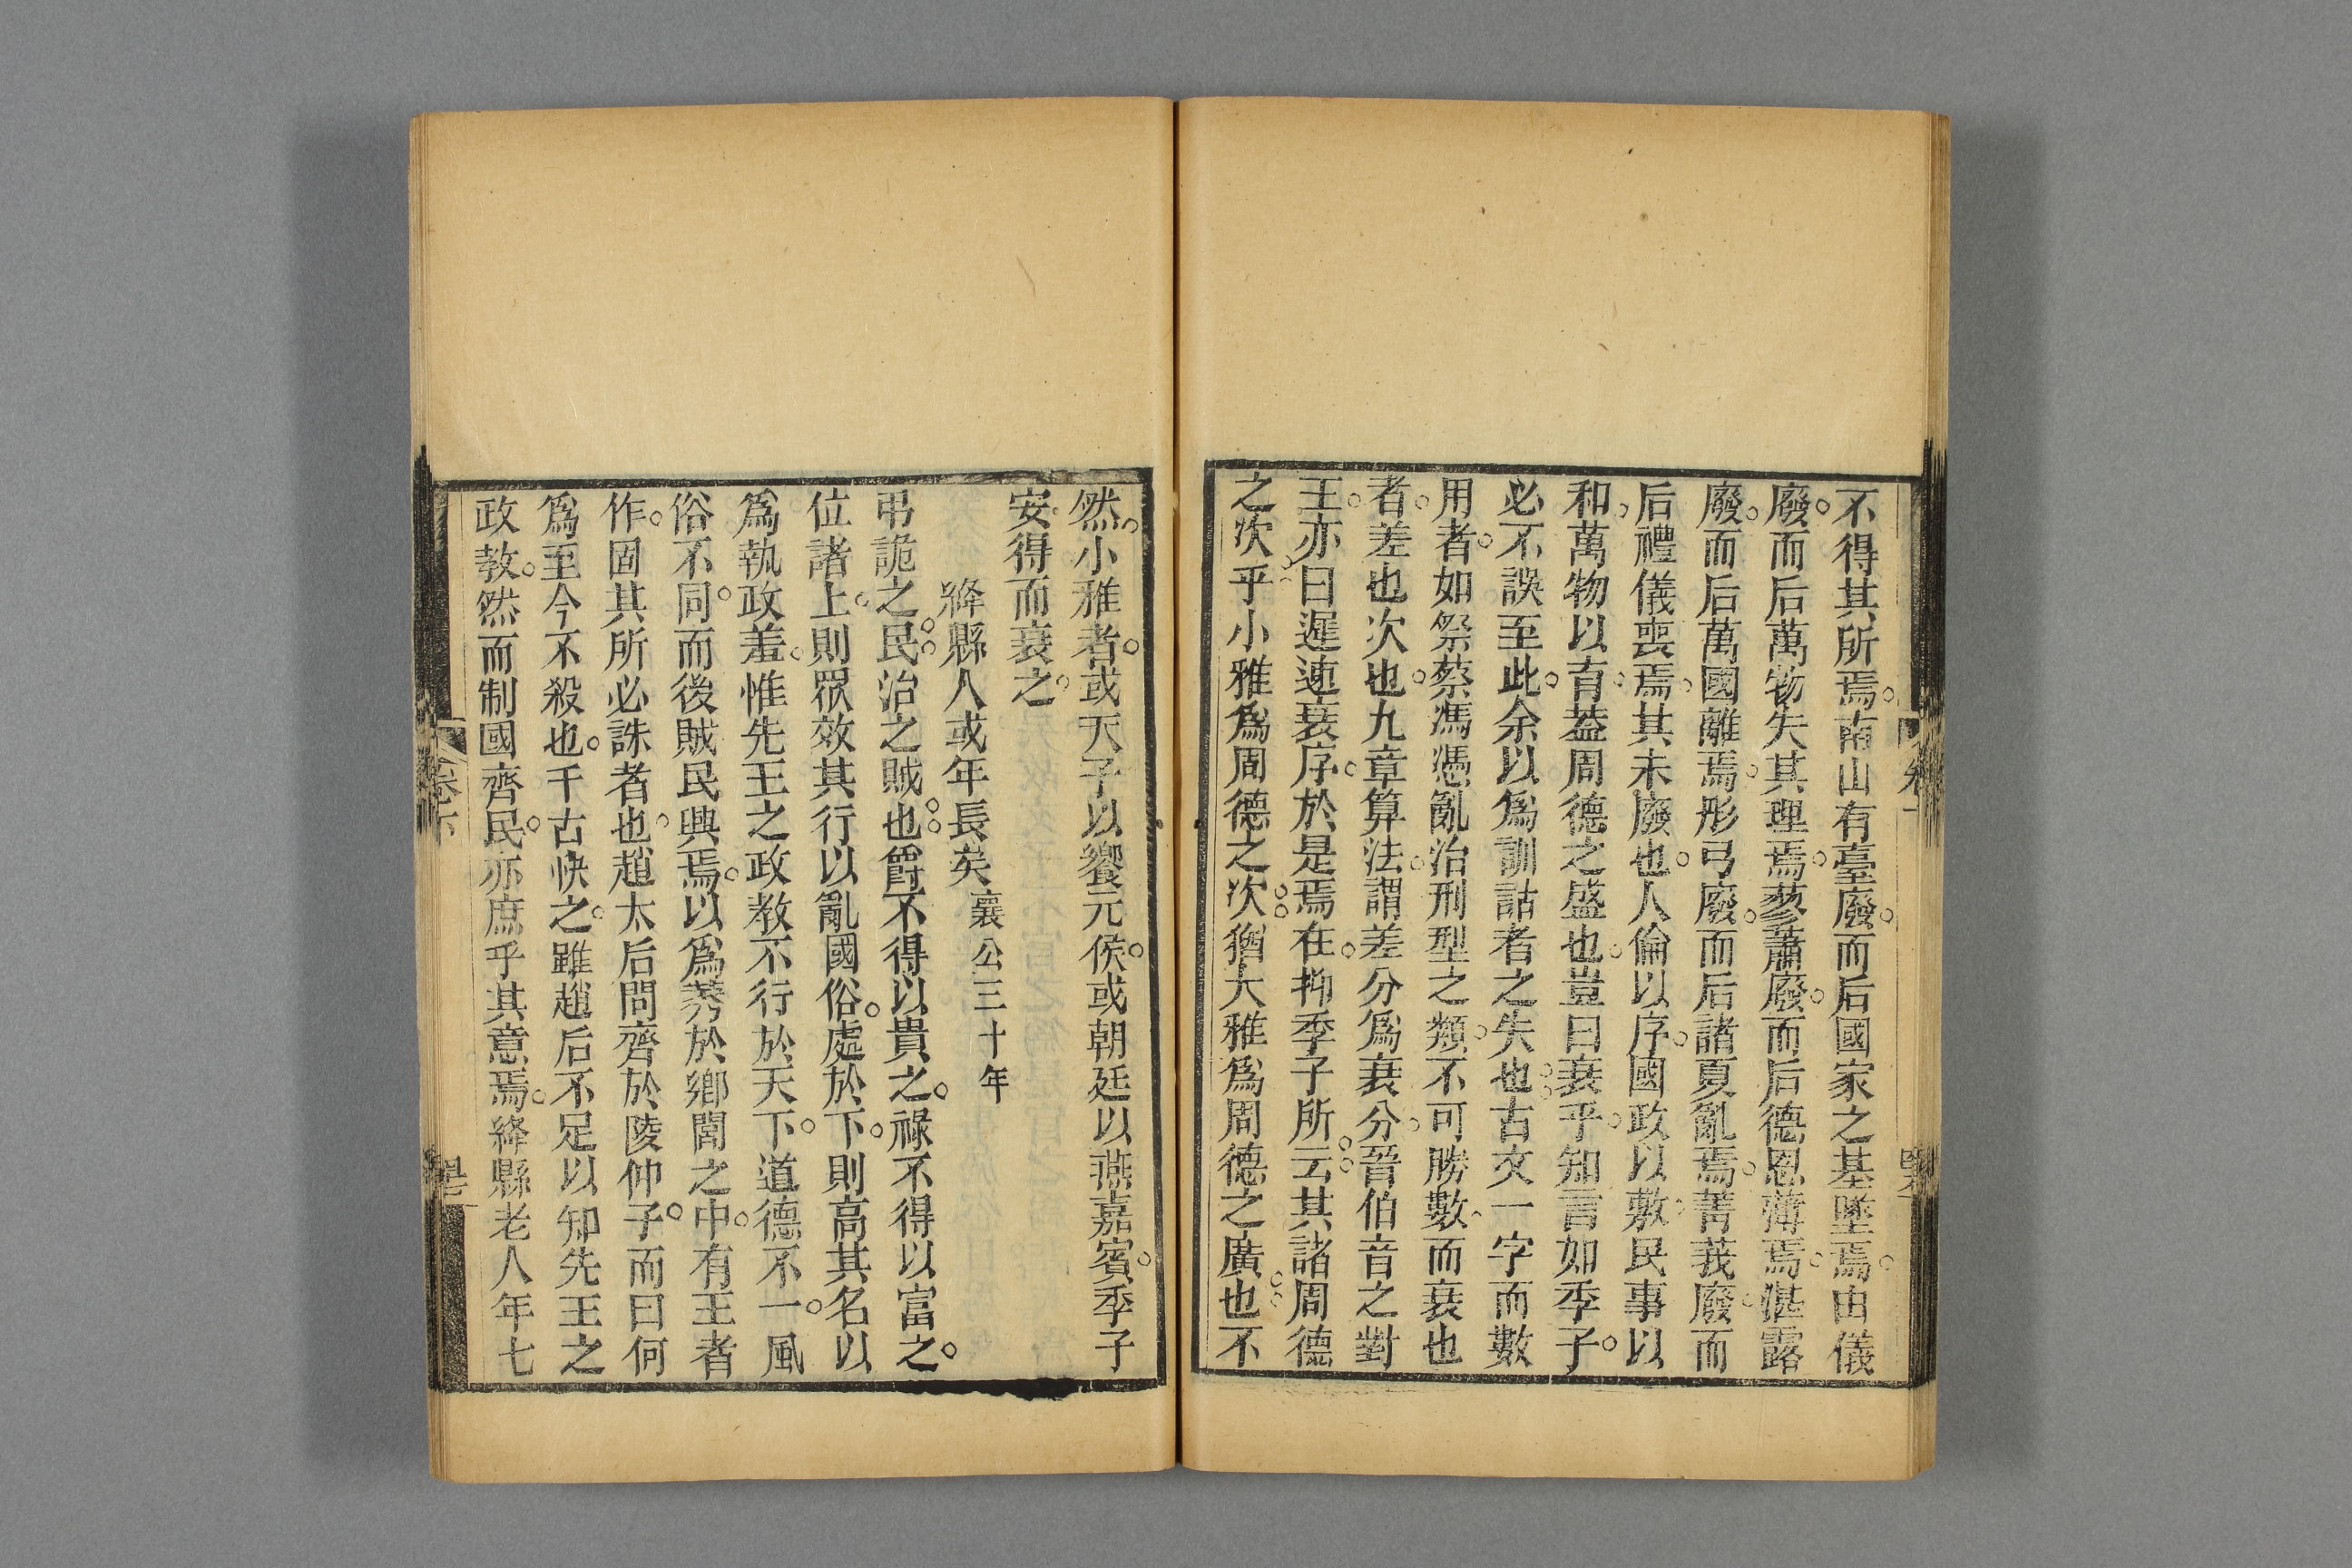 不得其所焉。南山有臺廢。而后國家之基墜焉。由儀
廢。而后萬物失其理焉。蓼蕭廢。而后德恩薄焉。湛露
廢。而后萬國離焉。彤弓廢。而后諸夏亂焉。菁莪廢。而
后禮儀喪焉。其未廢也。人倫以序。國政以敷。民事以
和。萬物以育。葢周德之盛也。豈曰衰乎。知言如季子。
必不誤至此。余以爲訓詁者之失也。古文一字而數
用者。如祭蔡馮憑亂治刑型之類。不可勝數。而衰也
者。差也次也。九章算法。謂差分爲衰分。晉伯音之對
王。亦曰遲速衰序。於是焉在。抑季子所云。其諸周德
之次乎。小雅爲周德之次。猶大雅爲周德之廣也。不
然。小雅者。或天子以饗元侯。或朝廷以燕嘉賓。季子
安得而衰之。
絳縣人或年長矣 襄公三十年
弔詭之民。治之賊也。爵不得以貴之。祿不得以富之。
位諸上。則眾效其行以亂國俗。處於下。則高其名以
爲執政羞。惟先王之政教不行於天下。道德不一。風
俗不同。而後賊民興焉。以爲莠於鄉閭之中。有王者
作。固其所必誅者也。趙太后問齊於陵仲子。而曰何
爲至今不殺也。千古快之。雖趙后不足以知先王之
政教。然而制國齊民。亦庶乎其意焉。絳縣老人年七
卷下